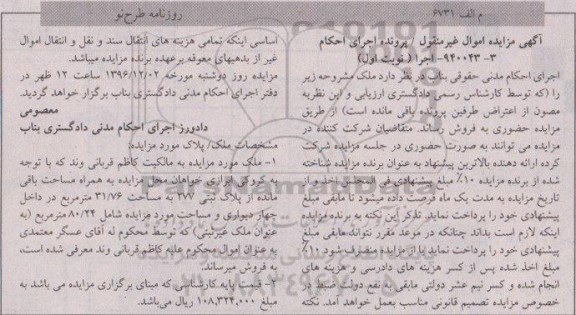 م الف ۶۷۳۱
روزنامه طرح‌نو
آگهی مزایده اموال غیرمنقول پرونده اجرای احکام
۳- ۹۴۰۰۴۳- اجرا ( نوبت اول)
اجرای احکام مدنی حقوقی بناب در نظر دارد ملک مشروحه زیر
را (که توسط کارشناس رسمی دادگستری ارزیابی و این نظریه
مصون از اعتراض طرفین پرونده باقی مانده است) از طریق
مزایده حضوری به فروش رساند. متقاضیان شرکت کننده در
مزایده می توانند به صورت حضوری در جلسه مزایده شرکت
کرده ارائه دهنده بالاترین پیشنهاد به عنوان برنده مزایده شناخته
شده از برنده مزایده ۱۰٪ مبلغ پیشنهادی فی المجلس اخذ و از
تاریخ مزایده به مدت یک ماه فرصت داده میشود تا مابقی مبلغ
پیشنهادی خود را پرداخت نماید. تذکر این نکته به برنده مزایده
اینکه لازم است بداند چنانکه در موعد مقرر نتواند مابقی مبلغ
پیشنهادی خود را پرداخت نماید یا از مزایده منصرف شود ۱۰٪
مبلغ اخذ شده پس از کسر هزینه های دادرسی و هزینه های
انجام شده و کسر نیم عشر دولتی مابقی به نفع دولت ضبط در
خصوص مزایده تصمیم قانونی مناسب بعمل خواهد آمد. نکته
اساسی اینکه تمامی هزینه های انتقال سند و نقل و انتقال اموال
غیر از بدهیهای معوقه برعهده برنده مزایده میباشد.
مزایده روز دوشنبه مورخه ۱۳۹۶/۱۲/۰۲ ساعت ۱۲ ظهر در
دفتر اجرای احکام مدنی دادگستری بناب برگزار خواهد گردید.
معصومی
دادورز اجرای احکام مدنی دادگستری بناب
مشخصات ملک/ پلاک مورد مزایده:
۱- ملک مورد مزایده به مالکیت کاظم قربانی وند که با توجه
به کروکی ابرازی خواهان محل مزایده به همراه مساحت باقی
مانده از پلاک ثبتی ۲۷۷ به مساحت ۳۱/۷۶ مترمربع در داخل
چهار دیواری و مساحت مورد مزایده شامل ۸۰/۲۴ مترمربع (به
عنوان ملک غیرثبتی) که توسط محکوم له آقای عسگر معتمدی
به عنوان اموال محکوم علیه کاظم قربانی وند معرفی شده است،
به فروش میرساند.
۲- قیمت پایه کارشناسی که مبنای برگزاری مزایده می باشد به
مبلغ ۱۰۸,۳۲۴,۰۰۰ ریال می‌باشد.
ParsNamadData